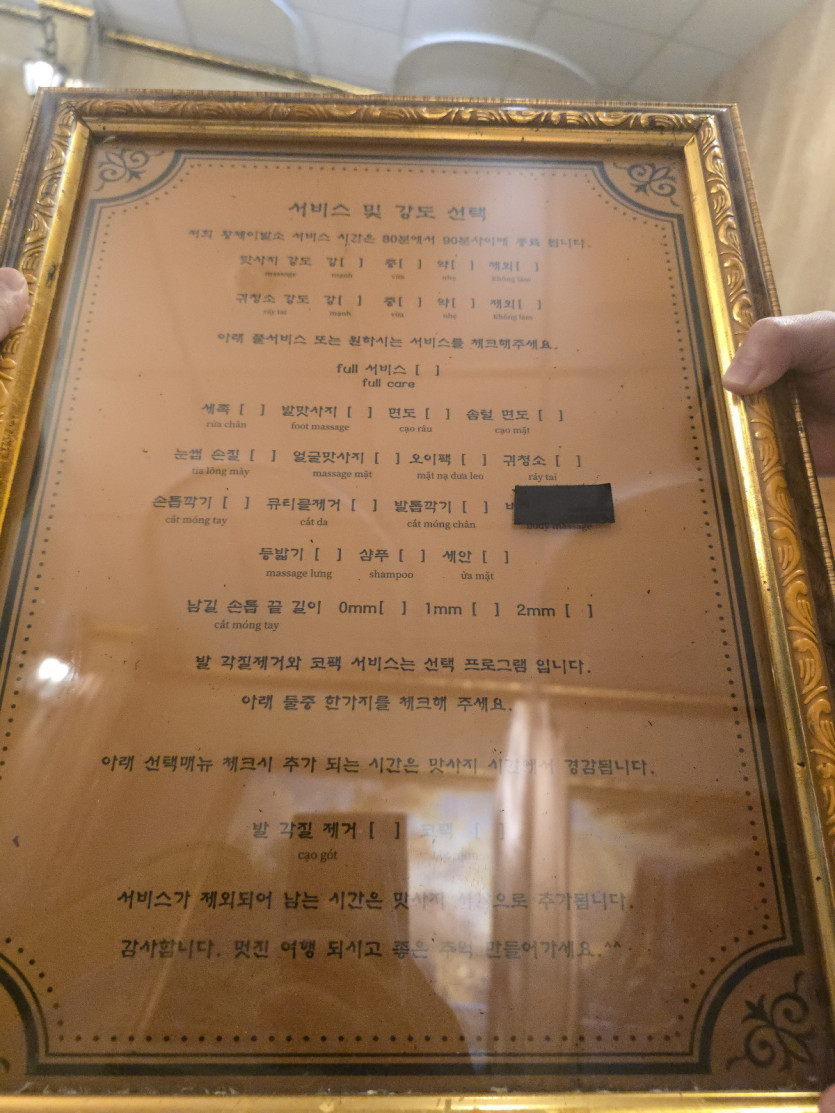 서비스 및 강도 선택
저희 황제이발소 서비스 시간은 80분에서 90분사이에 종료 됩니다.
맛사지 강도 강[ ] 중[ ] 약[ ] 제외[ ]
massage mạnh vừa nhẹ Không làm
귀청소 강도 강[ ] 중[ ] 약[ ] 제외[ ]
ráy tai mạnh vừa nhẹ Không làm
아래 풀서비스 또는 원하시는 서비스를 체크해주세요.
full 서비스 [ ]
full care
세족 [ ] 발맛사지 [ ] 면도 [ ] 솜털 면도 [ ]
rửa chân foot massage cạo râu cạo mặt
눈썹 손질 [ ] 얼굴맛사지 [ ] 오이팩 [ ] 귀청소 [ ]
tỉa lông mày massage mặt mặt nạ dưa leo ráy tai
손톱깍기 [ ] 큐티클제거 [ ] 발톱깍기 [ ]
cắt móng tay cắt da cắt móng chân body massage
등밟기 [ ] 샴푸 [ ] 세안 [ ]
massage lưng shampoo ửa mặt
남길 손톱 끝 길이 0mm[ ] 1mm [ ] 2mm [ ]
cắt móng tay
발 각질제거와 코팩 서비스는 선택 프로그램 입니다.
아래 둘중 한가지를 체크해 주세요.
아래 선택매뉴 체크시 추가 되는 시간은 맛사지 시간에서 경감됩니다.
발 각질 제거 [ ] 코팩 [ ]
cạo gót
서비스가 제외되어 남는 시간은 맛사지 시간으로 추가됩니다.
감사합니다. 멋진 여행 되시고 좋은 추억 만들어가세요.^^